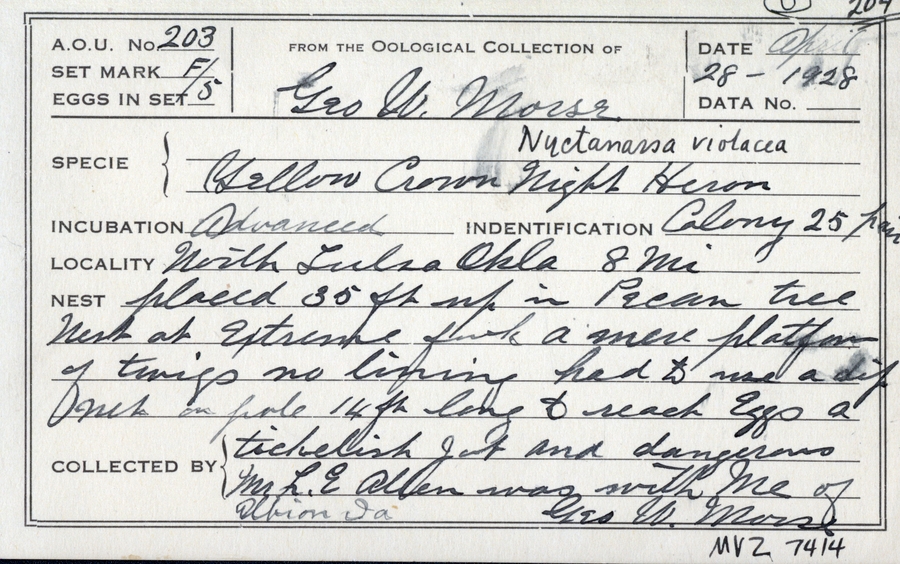 204
A.O.U. No. 203
FROM THE OOLOGICAL COLLECTION OF
DATE April
SET MARK F/5
28 - 1928
EGGS IN SET
Geo W. Morse
DATA NO.
Nyctanassa violacea
SPECIE
Yellow Crown Night Heron
INCUBATION Advanced INDENTIFICATION Colony 25 pair
LOCALITY North Tulsa Okla 8 Mi
NEST placed 35 ft up in Pecan tree
Nest at Extreme fork a mere platform
of twigs no lining had to use a dip
net on pole 14 ft long to reach Eggs a
tickelish Job and dangerous
COLLECTED BY
Mr L. E Allen was with Me of
Albion Ia Geo W. Morse
MVZ 7414